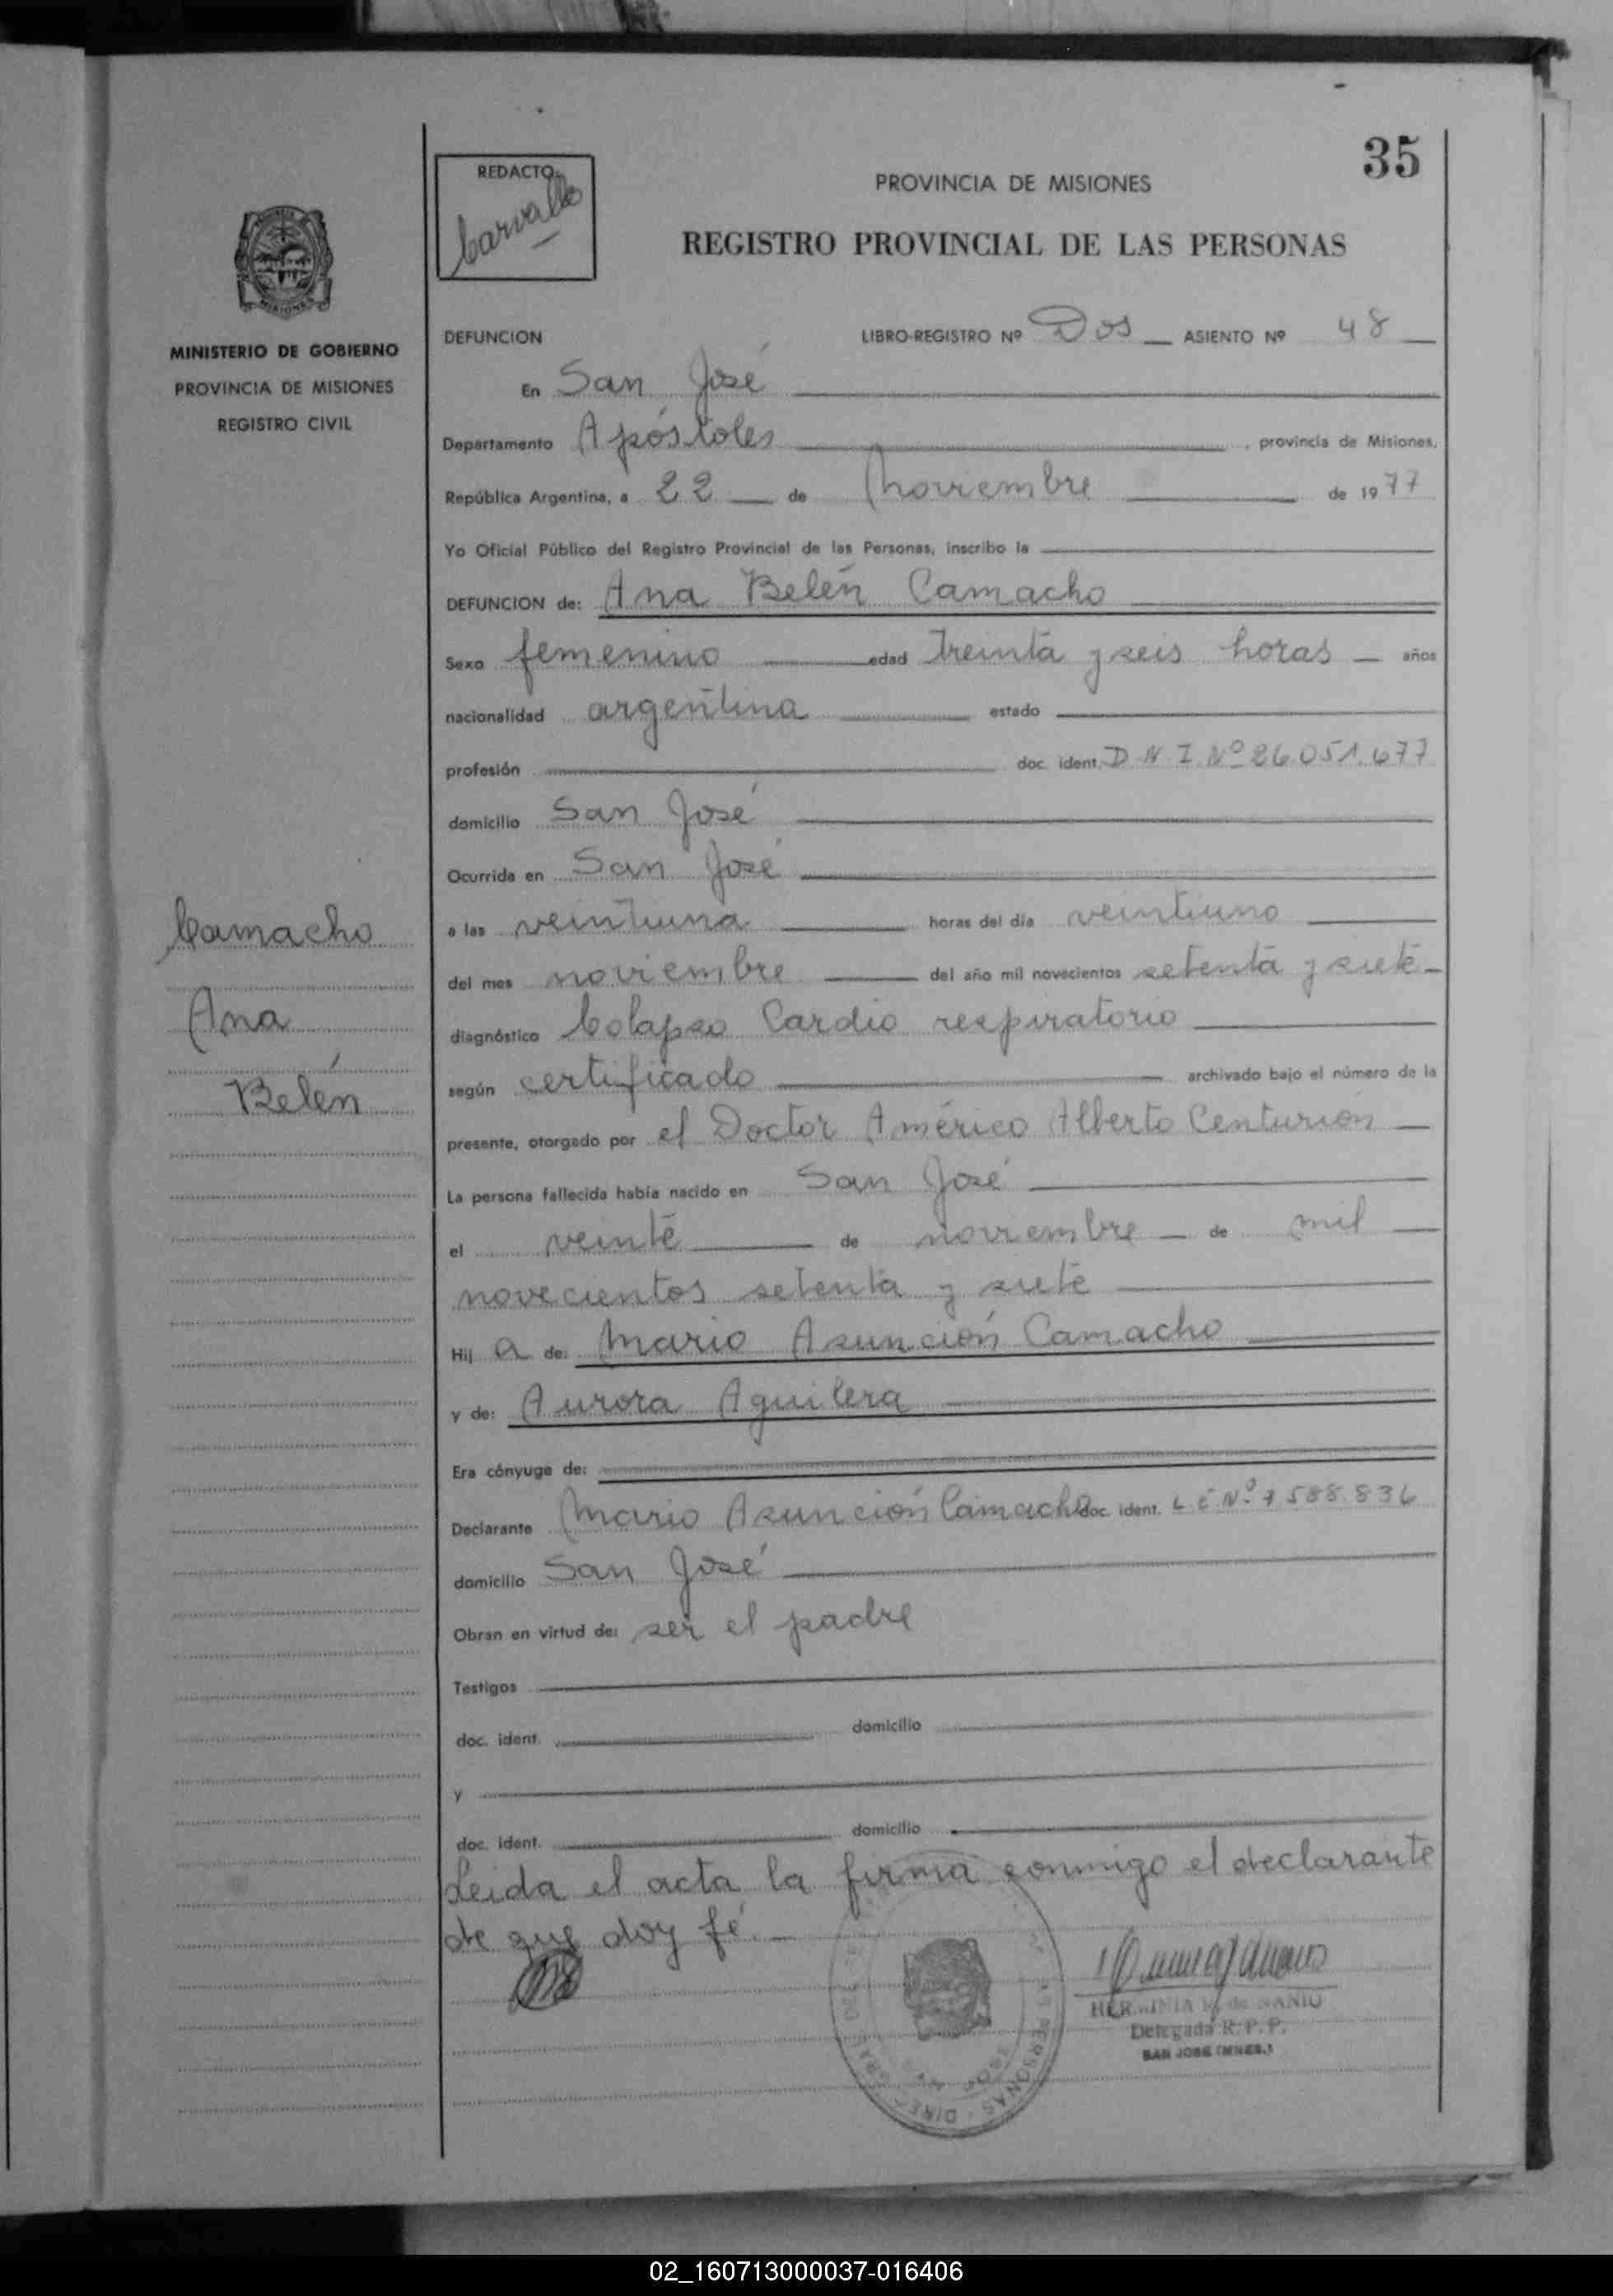 35
REDACTO:
Carvallo
PROVINCIA DE MISIONES
REGISTRO PROVINCIAL DE LAS PERSONAS
MINISTERIO DE GOBIERNO
PROVINCIA DE MISIONES
REGISTRO CIVIL
DEFUNCION LIBRO-REGISTRO Nº Dos ASIENTO Nº 48
En San José
Departamento Apóstoles, provincia de Misiones,
República Argentina, a 22 de noviembre de 1977
Yo Oficial Público del Registro Provincial de las Personas, inscribo la
DEFUNCION de: Ana Belén Camacho
Sexo femenino edad treinta y seis horas años
nacionalidad argentina estado
profesión doc. ident. D.N.I. Nº 26.051.677
domicilio San José
Ocurrida en San José
a las veintiuna horas del día veintiuno
del mes noviembre del año mil novecientos setenta y siete
diagnóstico Colapso Cardio respiratorio
según certificado archivado bajo el número de la
presente, otorgado por el Doctor Américo Alberto Centurión
La persona fallecida había nacido en San José
el veinte de noviembre de mil
novecientos setenta y siete
Hij a de: Mario Asunción Camacho
y de: Aurora Aguilera
Era cónyuge de:
Declarante Mario Asunción Camacho doc. ident. L.E. Nº 7.588.836
domicilio San José
Obran en virtud de: ser el padre
Testigos
doc. ident. domicilio
y
doc. ident. domicilio
Leida el acta la firma conmigo el declarante
de que doy fé.
Camacho
Ana
Belén
HERMINIA de NANIO
Delegada R. P. P.
SAN JOSE (MNES.)
PERSONAS - DIREC
02_160713000037-016406